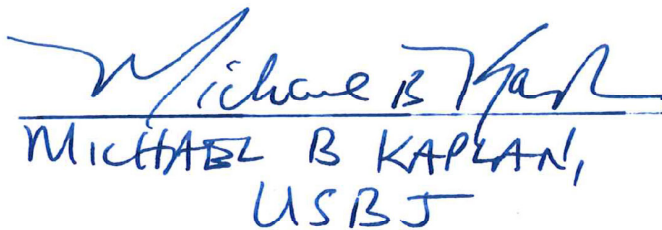 Michael B Kap
MICHAEL B KAPLAN,
USBJ